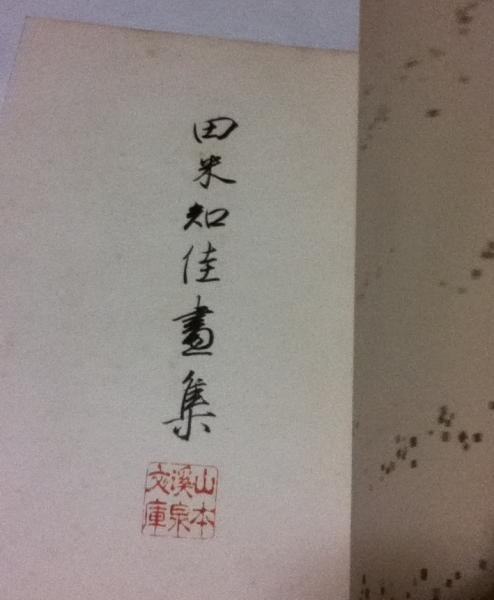 田米知佳畫集
山本
溪泉
文庫